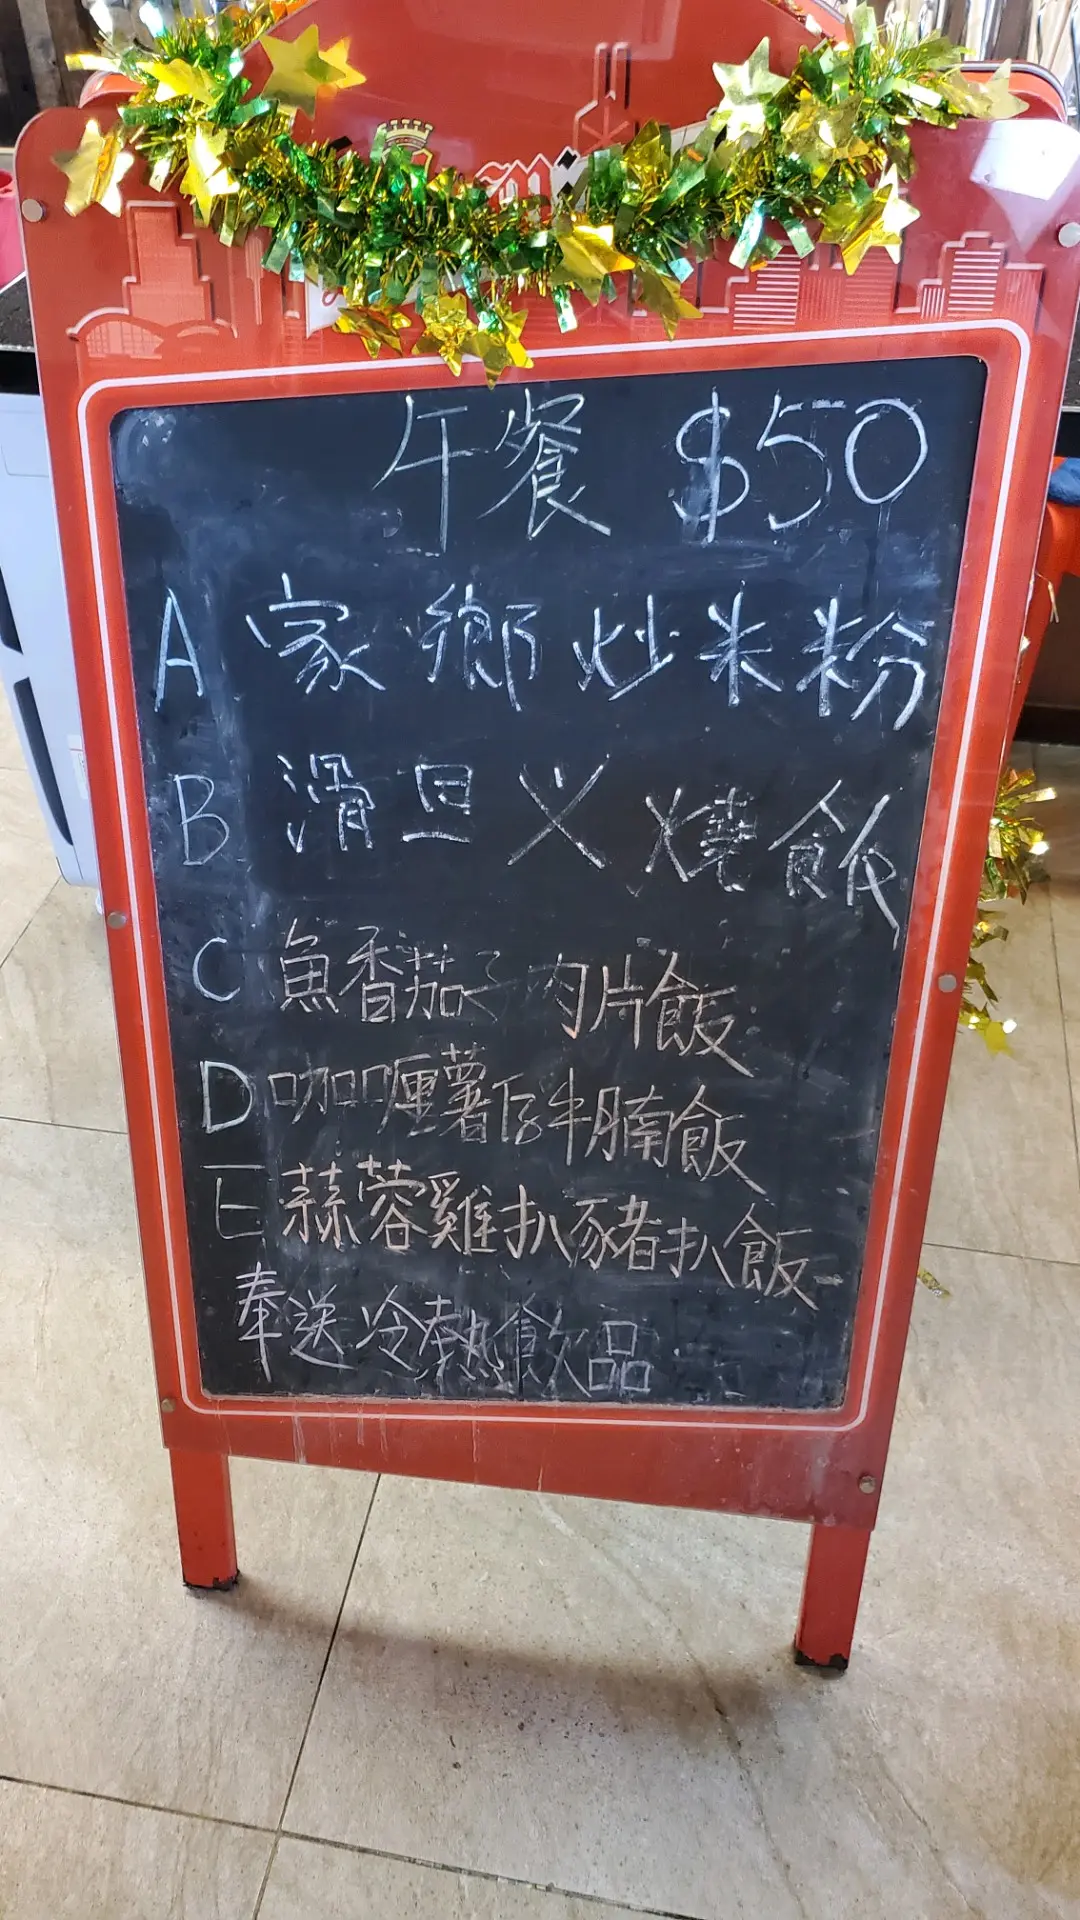 午餐 $50
A 家鄉炒米粉
B 滑旦义燒飯
C 魚香茄子肉片飯
D 咖喱薯仔牛腩飯
E 蒜蓉雞扒豬扒飯
奉送冷熱飲品